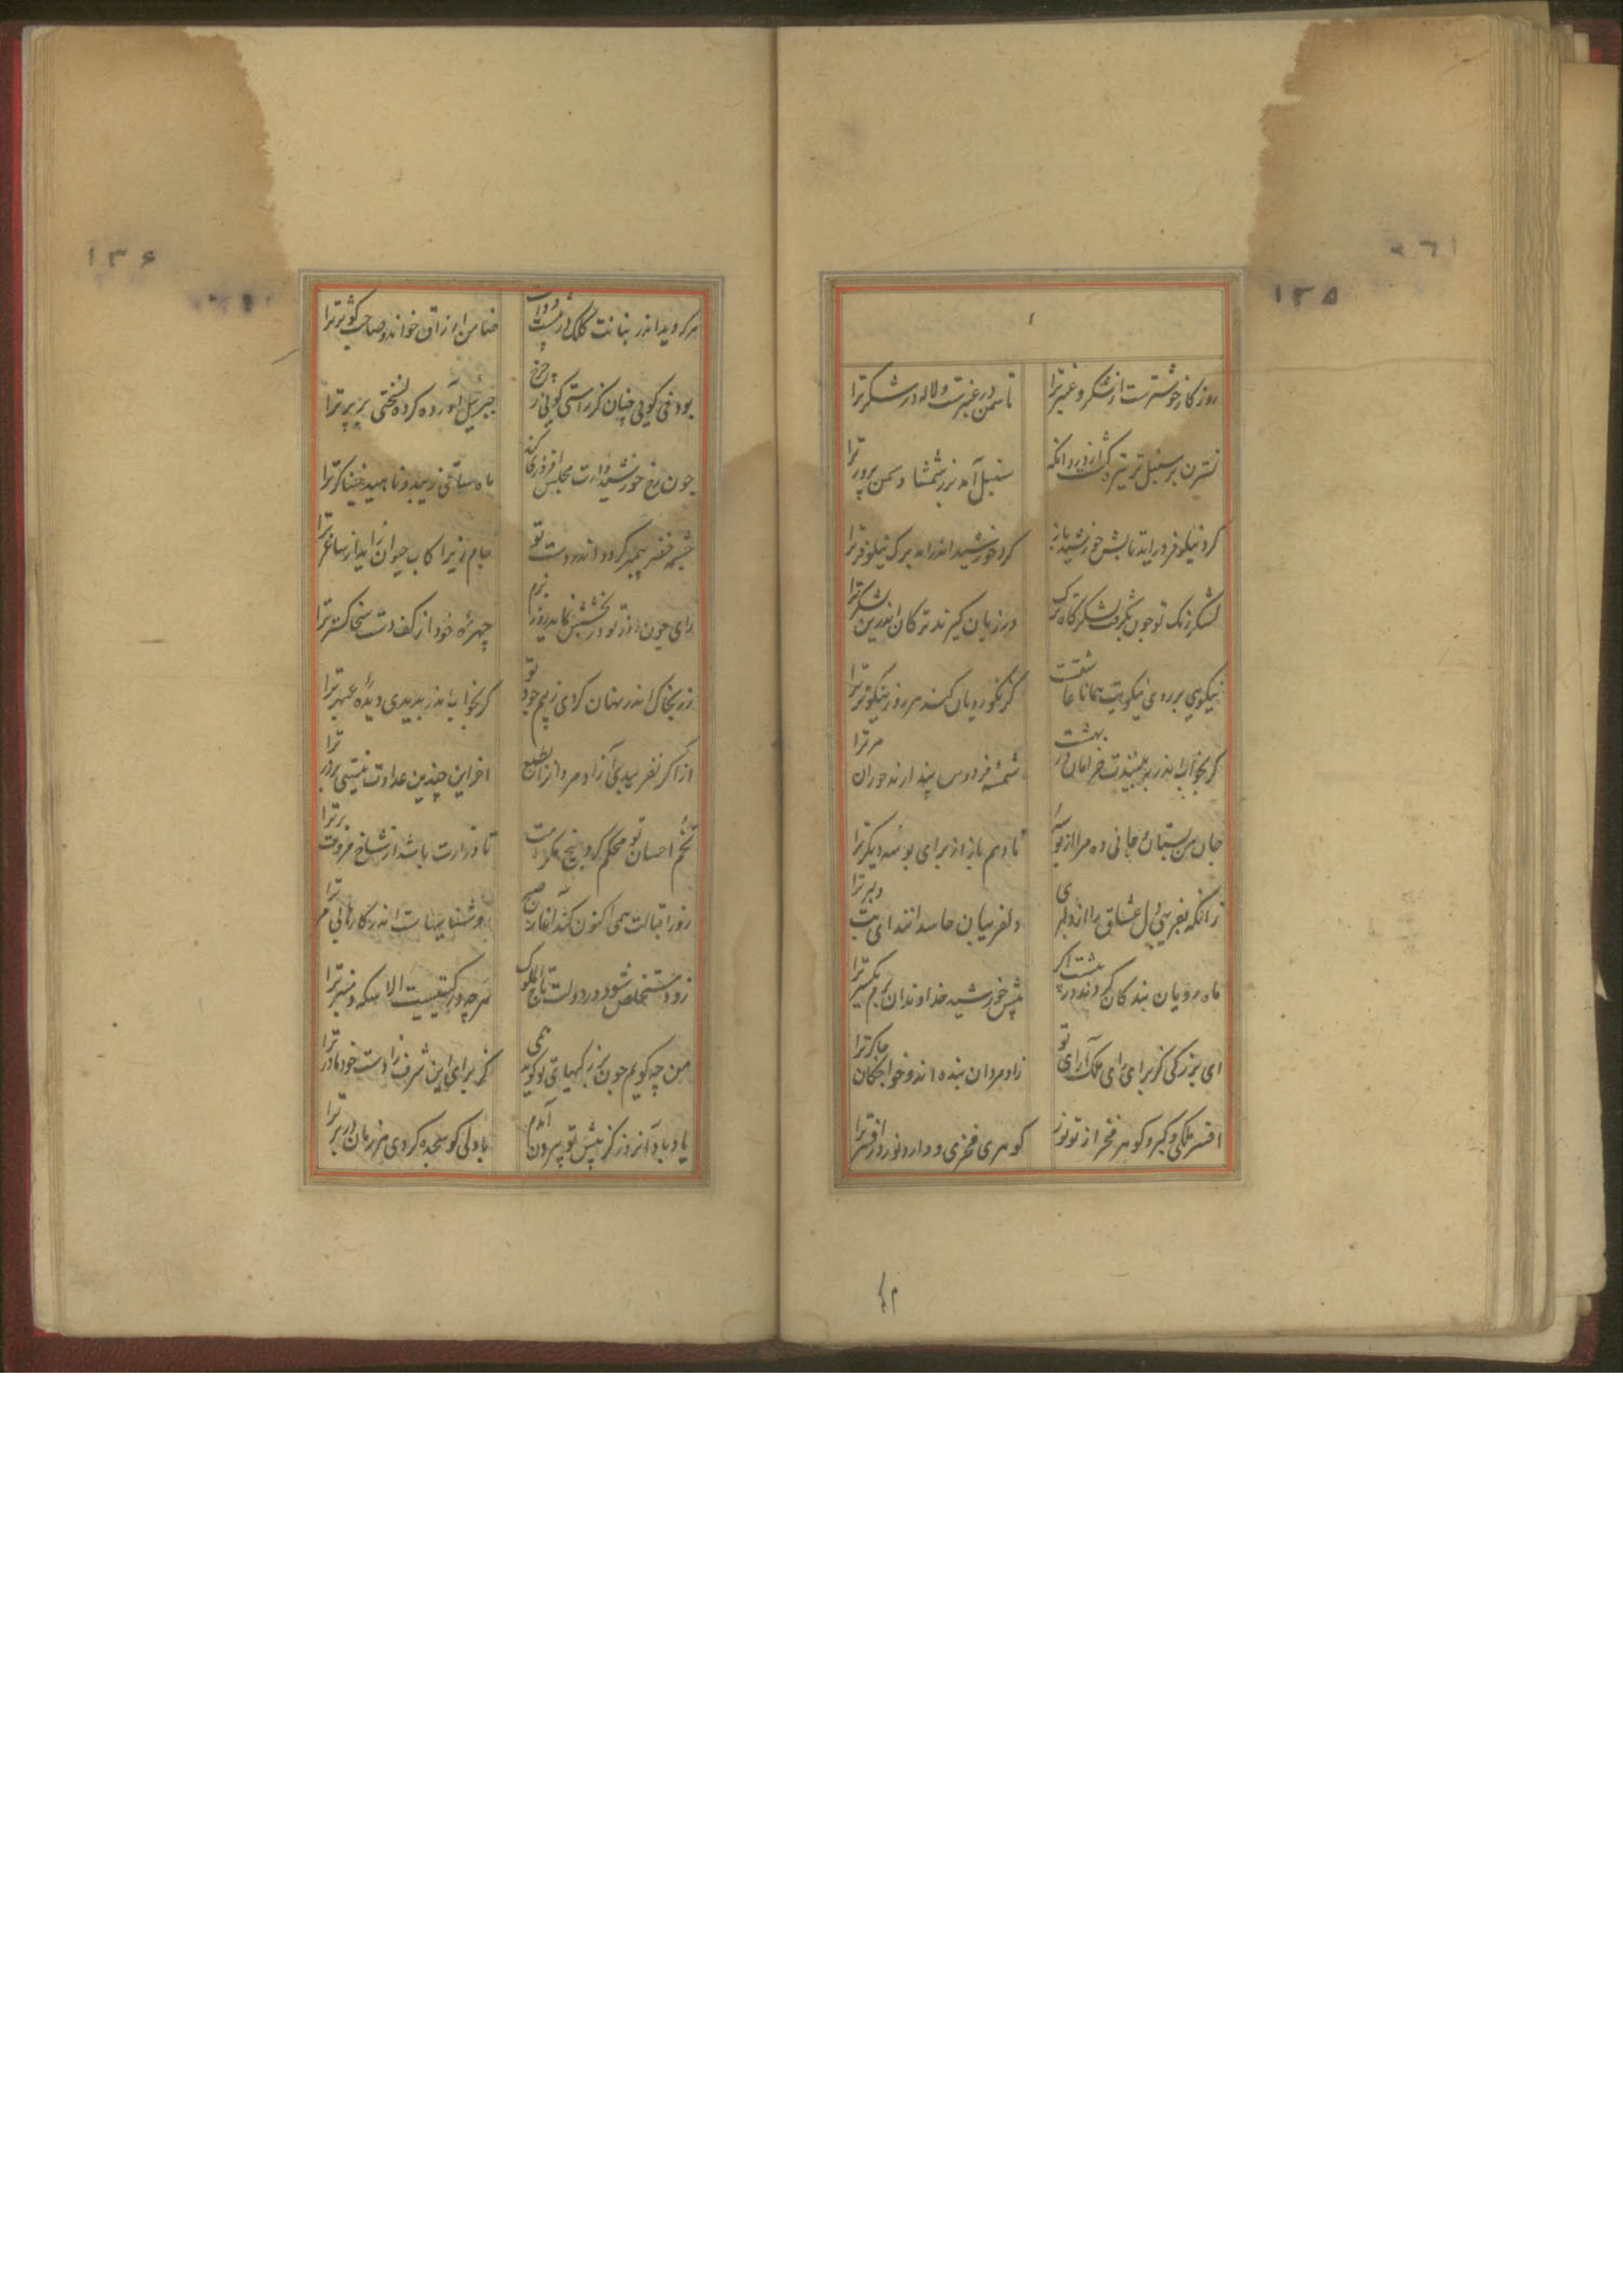 ۱۳۵
روزگار خوشترست از شکر و عنبر ترا
تا سمن در عنبرست و لاله در شکر ترا
نسترن بر سنبل تر تیره
سنبل آمد بر شمشاد و سمن پرور ترا
گرد نیلوفر درآید تابش خورشید باز
گرد خورشید اندر آمد برگ نیلوفر ترا
لشکر زنگ تو چون بگرفت لشکرگاه ترک
در زیان گیرند ترکان اندرین لشکر ترا
نیکویی بر روی نیکویت همانا عاشقست
کز نکورویان کند هر روز نیکوتر ترا
گر بخواب اندر ببینندت خرامان در بهشت
شمسهٔ فردوس پندارند حوران مر ترا
جان من بستان و جانی ده مرا از بوسهٔ
تا دهم باز از برای بوسهٔ دیگر ترا
زانکه بفریبی دل عشاق را از دلبری
دلفریبان حاسدانند ای بت دلبر ترا
ماه رویان بندگان گردند در پیشت اگر
پیش خورشید خداوندان برم یکسر ترا
ای بزرگی کز برای رای ملک آرای تو
رادمردان بنده اند و خواجگان چاکر ترا
افسر ملکی و گیرد گوهر فخر از تو نور
گوهری فخری و دارد نور در افسر ترا
۱۳۶
هر که دید اندر بنانت کلک
ضامن ارزاق خواند و صاحب کوثر ترا
بودنی گویی چنان کز راستی گویی ز چرخ
جبرئیل آورده کرده نسختی از بر ترا
چون رخ خورشید وارت مجلس افروزی کند
ماه ساقی زیبد و ناهید خنیاگر ترا
چشمه خضر پیمبر گردد اندر دست تو
جام زیرا کآب حیوان زاید از ساغر ترا
رای چون روز تو در بخشش نماید روز بزم
چهرهٔ خود از کف دست سخا گستر ترا
زر بخاک اندر نهان کردی ز بیم جود تو
گر بخواب اندر بدیدی دیدهٔ عبهر ترا
از اگر نفریدی آزاد مردا از طبع
آخر این چندین عداوت نیستی بر زر ترا
تخم احسان تو محکم کرد بیخ مکرمت
تا زرادت باشد از شاخ مروت بر ترا
روز اقبالت همی اکنون کند آغاز صبح
روشناییهاست اندر کارهایی مر ترا
زود مستخلص شود در دولت تاج ملوک
هر چه در گیتیست الا سکه و منبر ترا
من چه گویم چون بزرگیهای تو گوید همی
کز برای این شرف زادست خود مادر ترا
یاد باد آنروز کز پیش تو بیرون آمدم
با دلی کو سجده کردی هر زمان در بر ترا